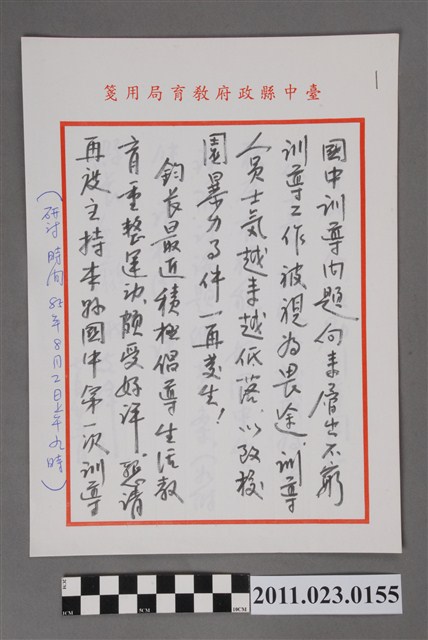 臺中縣政府教育局用箋
國中訓導問題向來層出不窮
訓導工作被視為畏途、訓導
人員士氣越來越低落、以致校
園暴力事件一再發生！
鈞長最近積極倡導生活教
育重整運動、頗受好評、懇請
再設主持本縣國中第一次訓導
（研討時間82年8月2日上午九時）
2CM
1CM
5CM
10CM
2011.023.0155